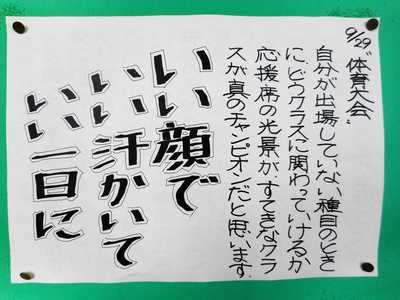 9/29 "体育大会"
自分が出場していない種目のとき
に、どうクラスに関わっていけるか
応援席の光景が、すてきなクラ
スが真のチャンピオンだと思います。
いい顔で
いい汗かいて
いい一日に